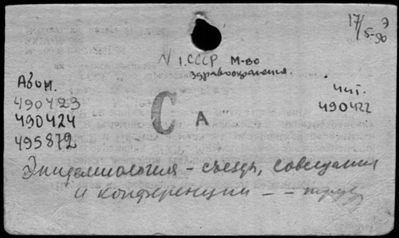 17/5-90 Э
1. СССР М-во
здравоохранения.
Абон.
490423
490424
495872
чит.
490422
С А
Эпидемиология - съезды, совещания
и конференции - - труды